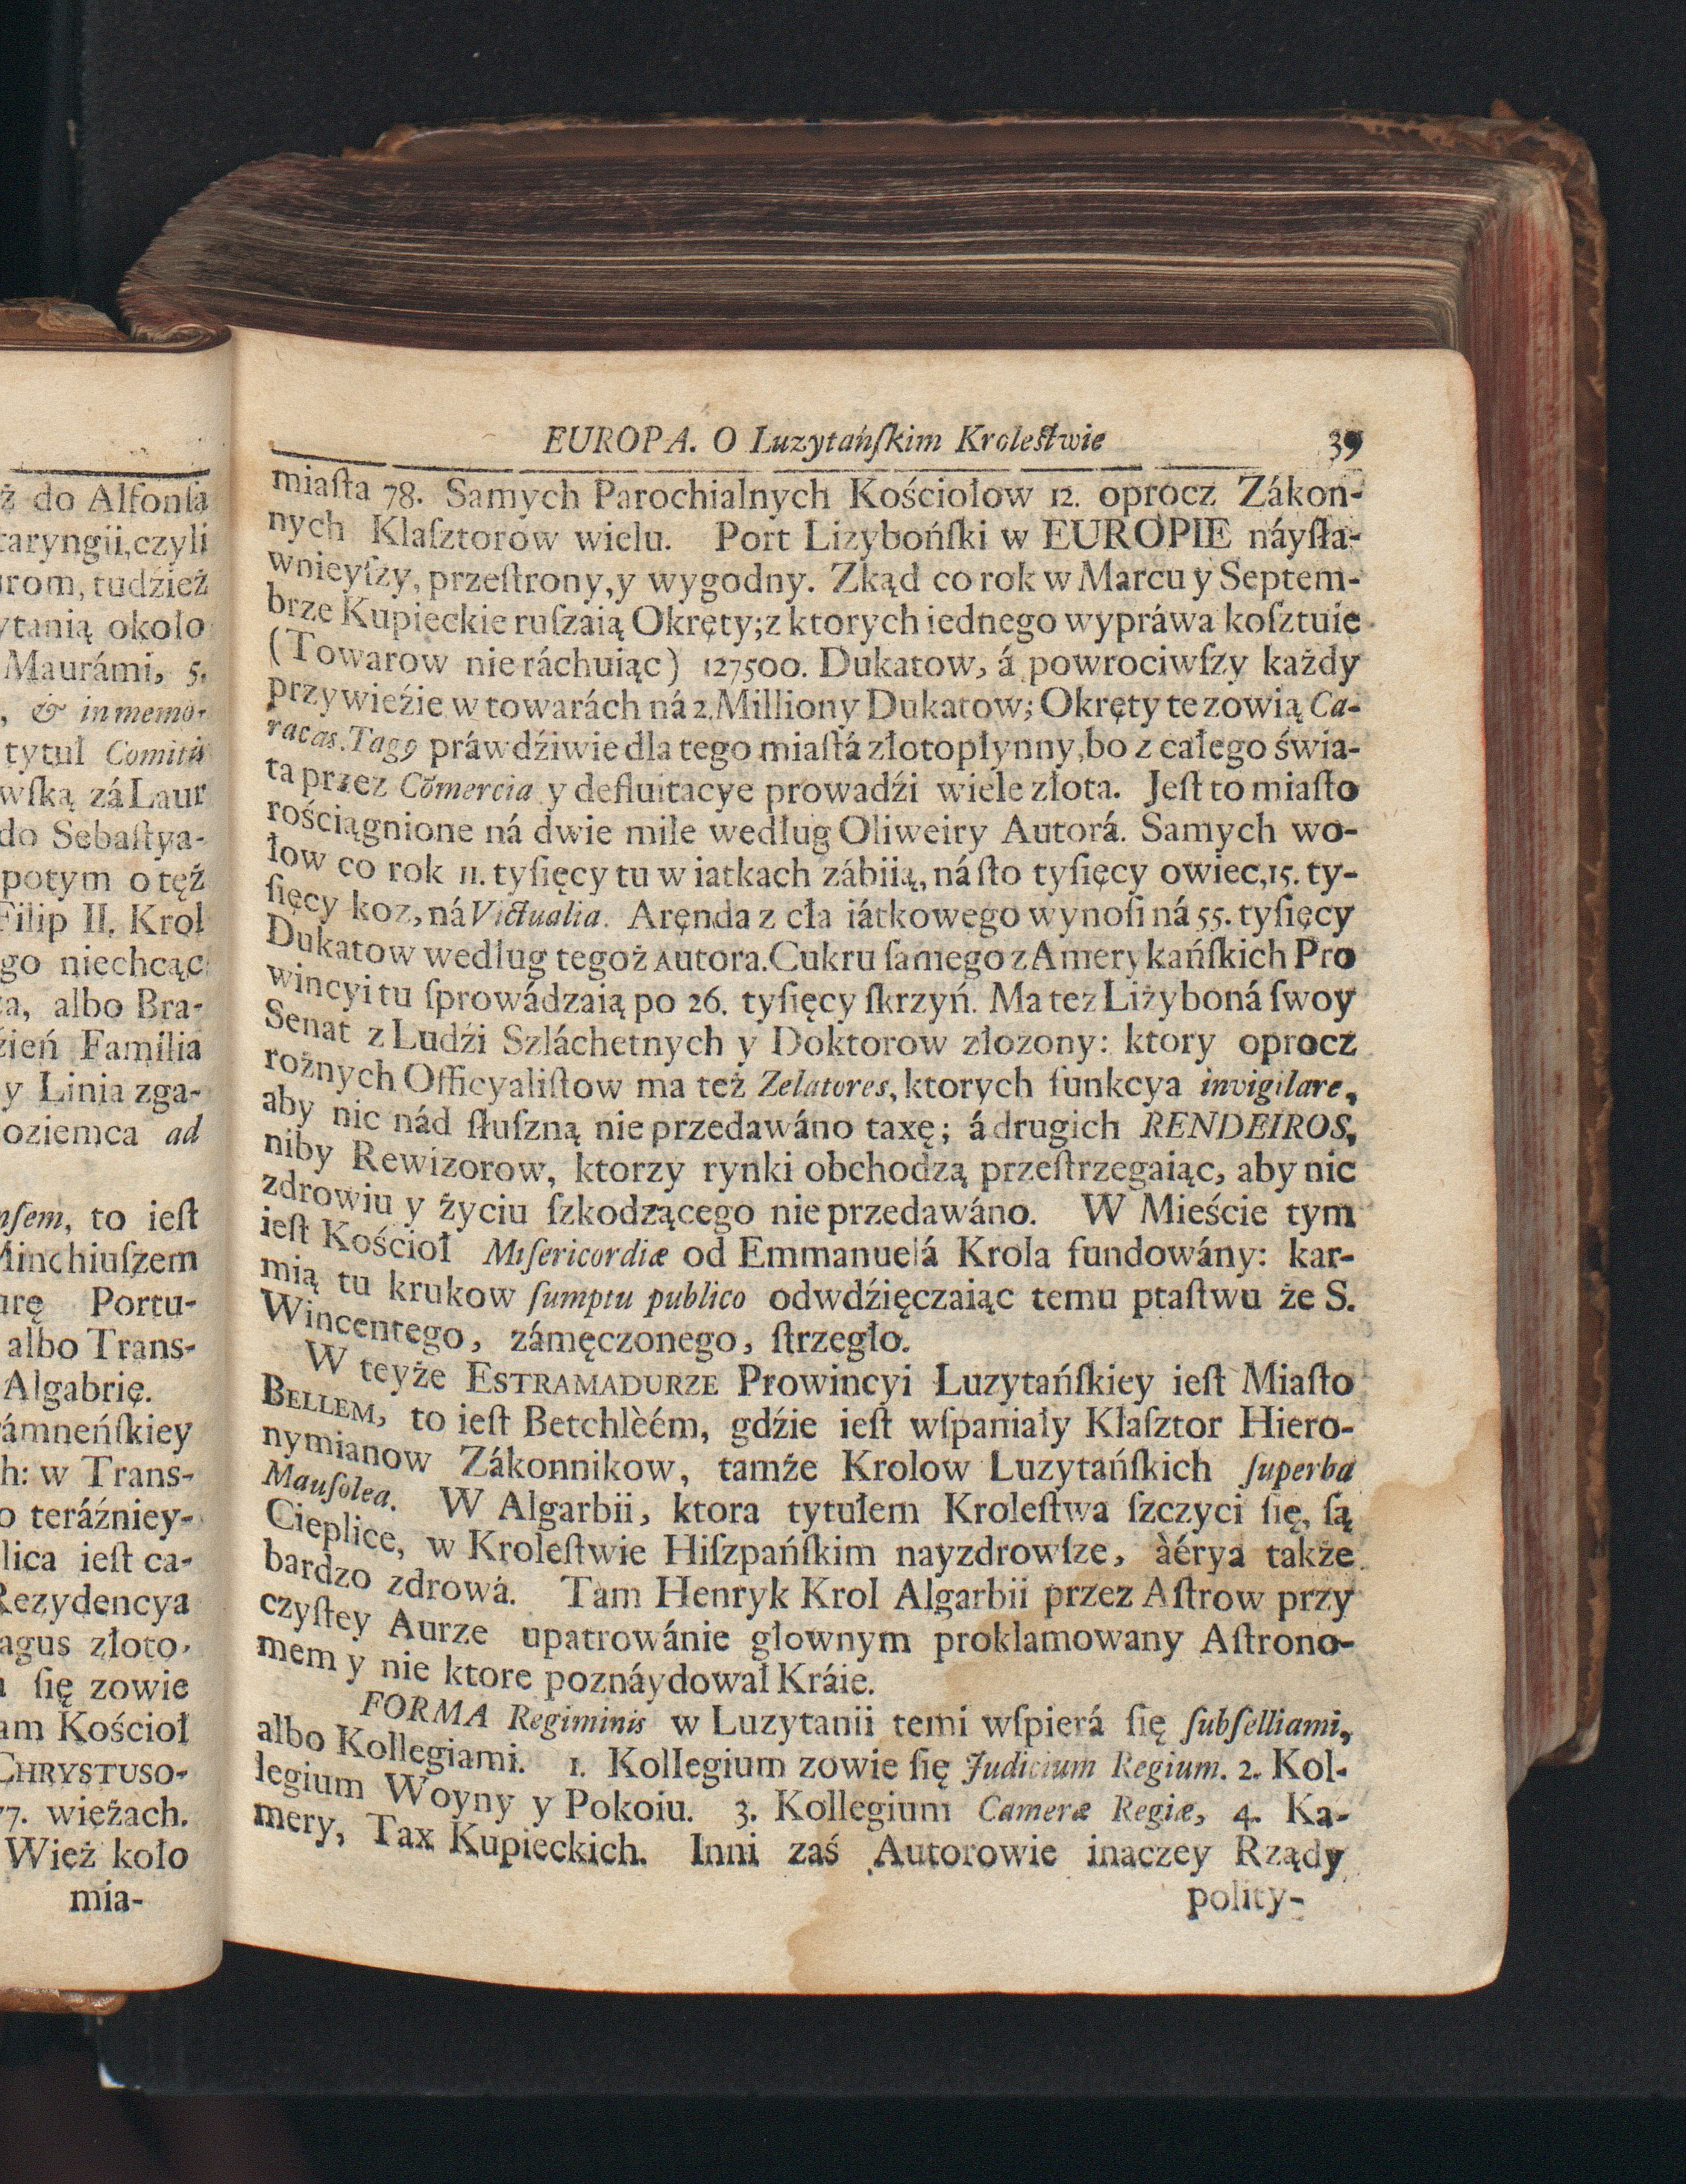 ż do Alfonſa
taryngii, czyli
urom, tudźież
ytanią około
Maurámi, 5.
, & in memo-
tytuł Comitis
wſką zá Laur
do Sebaſtya-
potym o tęź
Filip II. Krol
go niechcąc
ca, albo Bra-
źień Familia
y Linia zga-
oziemca ad
nſem, to ieſt
Minchiuſzem
urę Portu-
albo Trans-
Algabrię.
rámneńſkiey
h: w Trans-
o teráźniey-
lica ieſt ca-
Rezydencya
agus złoto-
ſię zowie
am Kościoł
CHRYSTUSO-
77. wieżach.
Wież koło
mia-
EUROPA. O Luzytańſkim Kroleſtwie 39
miaſta 78. Samych Parochialnych Kościołow 12. oprocz Zákon-
nych Klaſztorow wielu. Port Lizybońſki w EUROPIE náyſła-
wnieyſzy, przeſtrony, y wygodny. Zkąd co rok w Marcu y Septem-
brze Kupieckie ruſzaią Okręty; z ktorych iednego wypráwa koſztuie
(Towarow nie ráchuiąc) 127500. Dukatow, á powrociwſzy każdy
przywieźie w towarách ná 2. Milliony Dukatow; Okręty te zowią Ca-
racas. Tagꝰ práwdźiwie dla tego miaſtá złotopłynny, bo z całego świa-
ta przez Cõmercia y defluitacye prowadźi wiele złota. Jeſt to miaſto
rościągnione ná dwie mile według Oliweiry Autorá. Samych wo-
łow co rok 11. tyſięcy tu w iatkach zábiią, ná ſto tyſięcy owiec, 15. ty-
ſięcy koz, ná Victualia. Aręnda z cła iátkowego wynoſi ná 55. tyſięcy
Dukatow według tegoż Autora. Cukru ſamego z Amerykańſkich Pro
wincyi tu ſprowádzaią po 26. tyſięcy ſkrzyń. Ma też Liżyboná ſwoy
Senat z Ludźi Szláchetnych y Doktorow złozony: ktory oprocz
rożnych Officyaliſtow ma też Zelatores, ktorych funkcya invigilare,
aby nic nád ſłuſzną nie przedawáno taxę; á drugich RENDEIROS,
niby Rewizorow, ktorzy rynki obchodzą przeſtrzegaiąc, aby nic
zdrowiu y życiu ſzkodzącego nie przedawáno. W Mieście tym
ieſt Kościoł Miſericordiæ od Emmanuelá Krola fundowány: kar-
mią tu krukow ſumptu publico odwdźięczaiąc temu ptaſtwu że S.
Wincentego, zámęczonego, ſtrzegło.
W teyże ESTRAMADURZE Prowincyi Luzytańſkiey ieſt Miaſto
BELLEM, to ieſt Betchlèém, gdźie ieſt wſpaniały Klaſztor Hiero-
nymianow Zákonnikow, tamże Krolow Luzytańſkich ſuperba
Mauſolea. W Algarbii, ktora tytułem Kroleſtwa ſzczyci ſię, ſą
Cieplice, w Kroleſtwie Hiſzpańſkim nayzdrowſze, àérya także
bardzo zdrowá. Tam Henryk Krol Algarbii przez Aſtrow przy
czyſtey Aurze upatrowánie głownym proklamowany Aſtrono-
mem y nie ktore poznáydował Kráie.
FORMA Regiminis w Luzytanii temi wſpierá ſię ſubſelliami,
albo Kollegiami. 1. Kollegium zowie ſię Judicium Regium. 2. Kol-
legium Woyny y Pokoiu. 3. Kollegium Cameræ Regiæ, 4. Ka-
mery, Tax Kupieckich. Inni zaś Autorowie inaczey Rządy
polity-